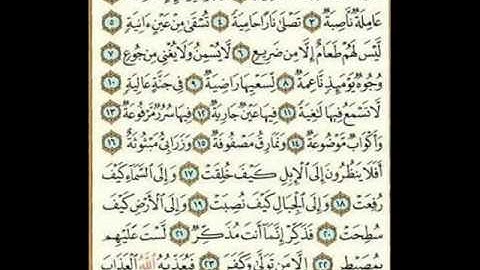 عَامِلَةٌ نَّاصِبَةٌ ٣ تَصْلَىٰ نَارًا حَامِيَةً ٤ تُسْقَىٰ مِنْ عَيْنٍ ءَانِيَةٍ ٥
لَّيْسَ لَهُمْ طَعَامٌ إِلَّا مِن ضَرِيعٍ ٦ لَّا يُسْمِنُ وَلَا يُغْنِي مِن جُوعٍ ٧
وُجُوهٌ يَوْمَئِذٍ نَّاعِمَةٌ ٨ لِّسَعْيِهَا رَاضِيَةٌ ٩ فِي جَنَّةٍ عَالِيَةٍ ١٠
لَّا تَسْمَعُ فِيهَا لَٰغِيَةً ١١ فِيهَا عَيْنٌ جَارِيَةٌ ١٢ فِيهَا سُرُرٌ مَّرْفُوعَةٌ ١٣
وَأَكْوَابٌ مَّوْضُوعَةٌ ١٤ وَنَمَارِقُ مَصْفُوفَةٌ ١٥ وَزَرَابِيُّ مَبْثُوثَةٌ ١٦
أَفَلَا يَنظُرُونَ إِلَى الْإِبِلِ كَيْفَ خُلِقَتْ ١٧ وَإِلَى السَّمَاءِ كَيْفَ
رُفِعَتْ ١٨ وَإِلَى الْجِبَالِ كَيْفَ نُصِبَتْ ١٩ وَإِلَى الْأَرْضِ كَيْفَ
سُطِحَتْ ٢٠ فَذَكِّرْ إِنَّمَا أَنتَ مُذَكِّرٌ ٢١ لَّسْتَ عَلَيْهِم
بِمُصَيْطِرٍ ٢٢ إِلَّا مَن تَوَلَّىٰ وَكَفَرَ ٢٣ فَيُعَذِّبُهُ اللَّهُ الْعَذَابَ